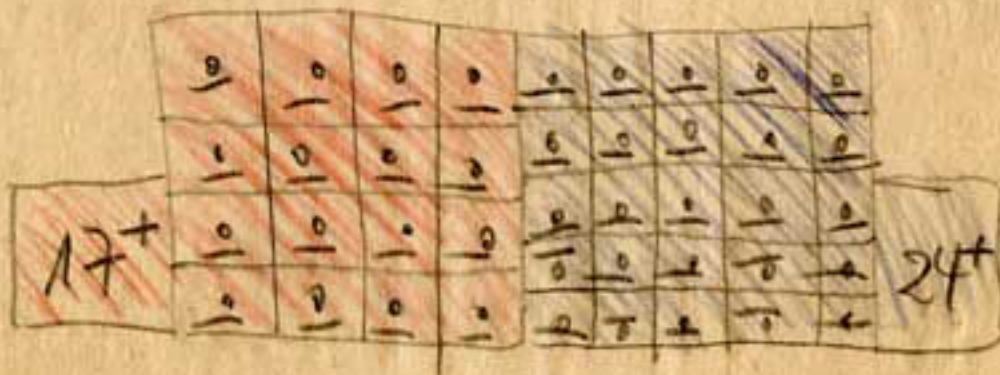 17+
24+